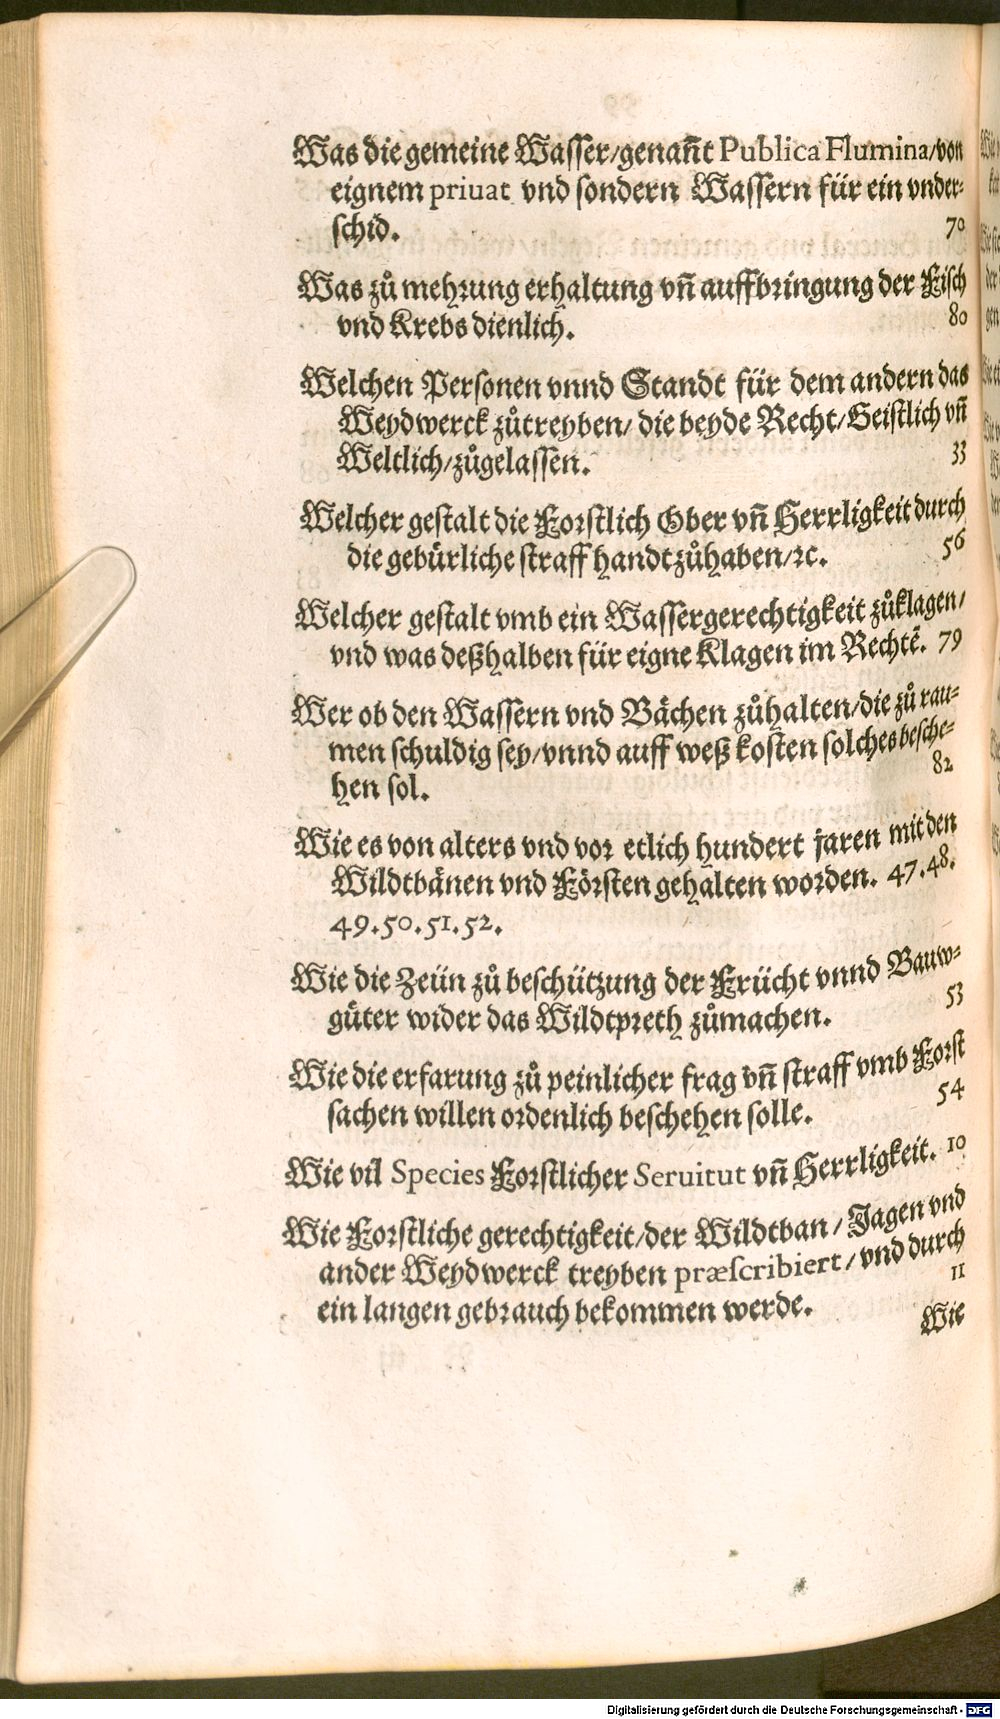 Was die gemeine Wasser/genañt Publica Flumina/von
eignem priuat vnd sondern Wassern für ein vnder-
schid. 70
Was zů mehrung erhaltung vñ auffbringung der Fisch
vnd Krebs dienlich. 80
Welchen Personen vnnd Standt für dem andern das
Weydwerck zůtreyben/ die beyde Recht/Geistlich vñ
Weltlich/zůgelassen. 33
Welcher gestalt die Forstlich Ober vñ Herrligkeit durch
die gebürliche straff handtzůhaben/ꝛc. 56
Welcher gestalt vmb ein Wassergerechtigkeit zůklagen/
vnd was deßhalben für eigne Klagen im Rechtē. 79
Wer ob den Wassern vnd Bächen zůhalten/die zů rau-
men schuldig sey/vnnd auff weß kosten solches besche-
hen sol. 82
Wie es von alters vnd vor etlich hundert jaren mit den
Wildtbänen vnd Försten gehalten worden. 47.48.
49.50.51.52.
Wie die Zeün zů beschützung der Frücht vnnd Bauw-
güter wider das Wildtpreth zůmachen. 53
Wie die erfarung zů peinlicher frag vñ straff vmb Forst
sachen willen ordenlich beschehen solle. 54
Wie vil Species Forstlicher Seruitut vñ Herrligkeit. 10
Wie Forstliche gerechtigkeit/der Wildtban/ Jagen vnd
ander Weydwerck treyben præscribiert/vnd durch
ein langen gebrauch bekommen werde. 11
Wie
Digitalisierung gefördert durch die Deutsche Forschungsgemeinschaft - DFG